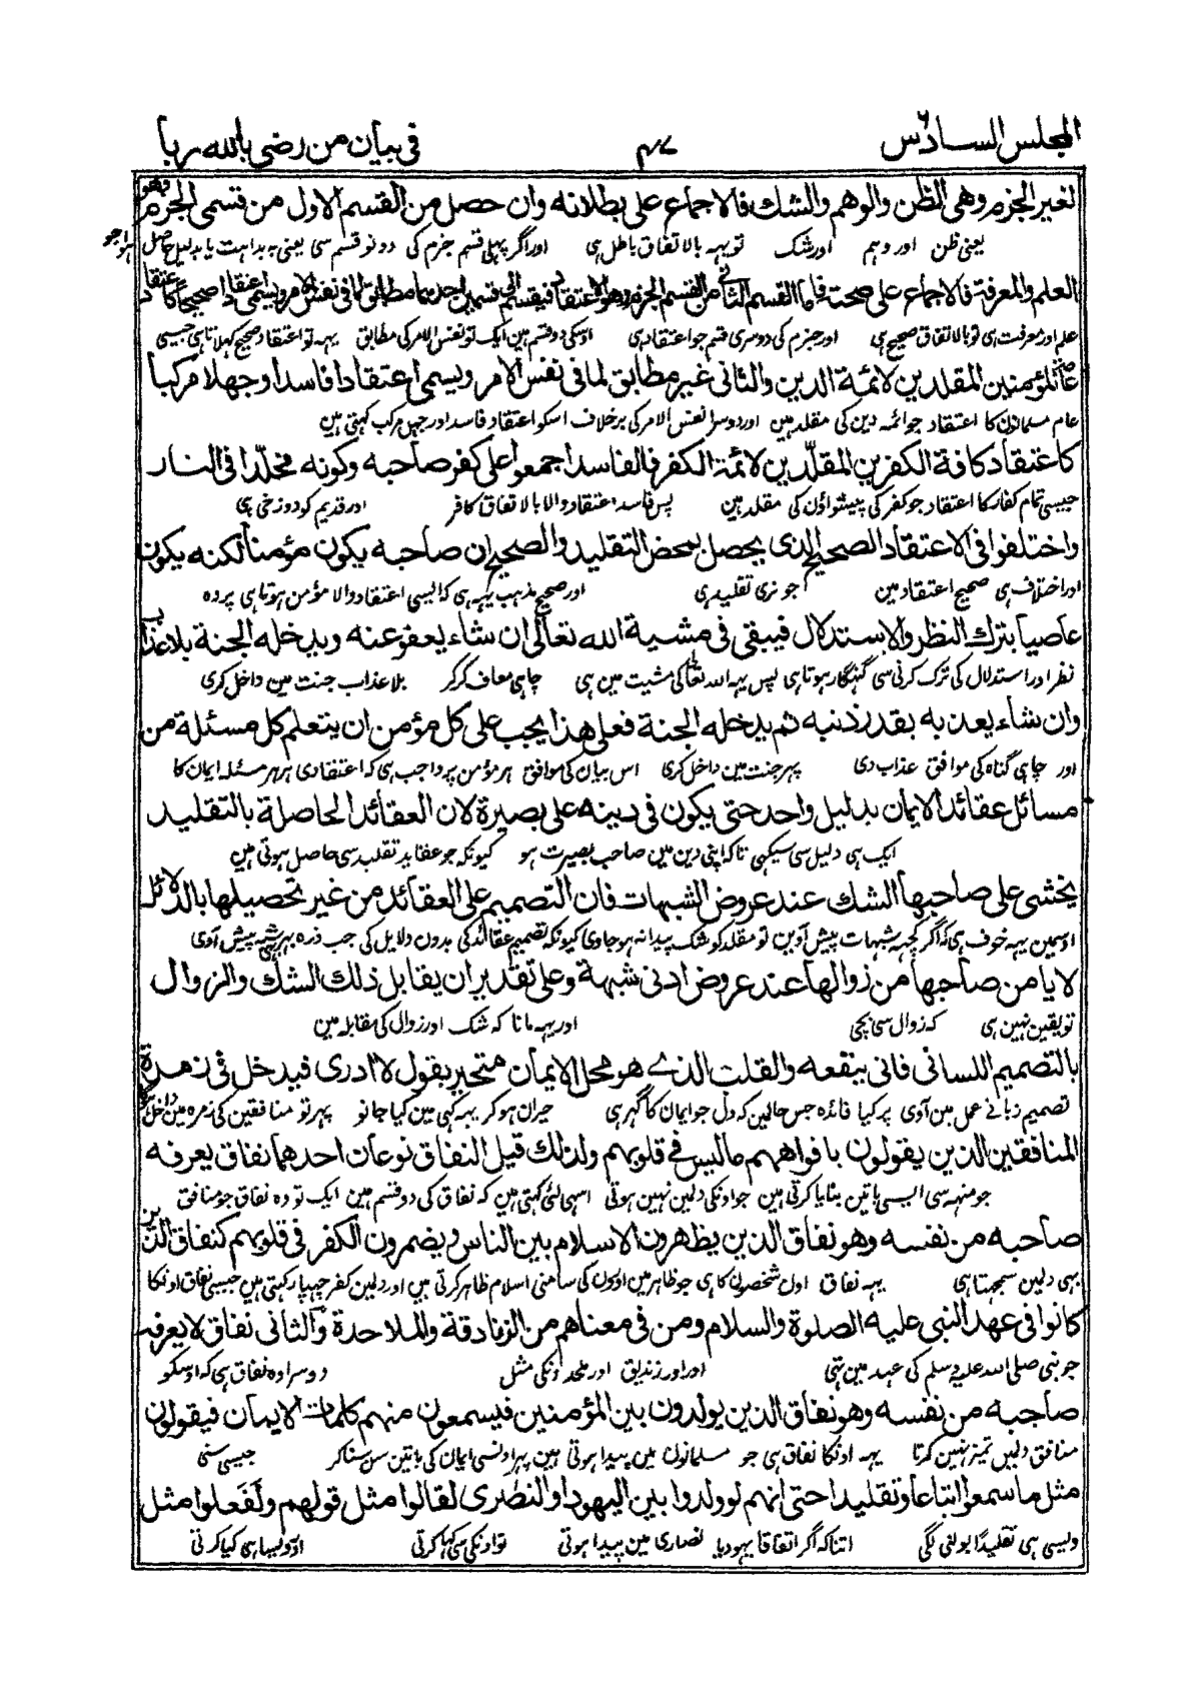 المجلس السادس
٤٧
فی بیان من رضی بالله ربا
لغیر الجزم وهی الظن والوهم والشك فالاجماع علی بطلانه وان حصل من القسم الاول من قسمی الجزم وهو
یعنی ظن اور وہم اور شک تو یہہ بالاتفاق باطل ہی اور اگر پہلی قسم جزم کی دو نو قسم سی یعنی بہ بداہت یا بدلیل حاصل ہوا جو
العلم والمعرفة فالاجماع علی صحته فاما القسم الثانی من القسم الجزم وهو الاعتقاد فینقسم الی قسمین احدهما مطابق لما فی نفس الامر ویسمی اعتقادا صحیحا کاعتقاد
علم اور معرفت ہی تو بالاتفاق صحیح ہی اور جزم کی دوسری قسم جو اعتقاد ہی اوسکی دو قسم ہین ایک تو نفس الامر کی مطابق یہہ تو اعتقاد صحیح کہلاتا ہی جیسی
عامة المؤمنین المقلدین لائمة الدین والثانی غیر مطابق لما فی نفس الامر ویسمی اعتقادا فاسدا وجهلا مرکبا
عام مسلمانون کا اعتقاد جو ائمہ دین کی مقلد ہین اور دوسرا نفس الامر کی برخلاف اسکو اعتقاد فاسد اور جہل مرکب کہتی ہین
کاعتقاد کافة الکفرین المقلّدین لائمة الکفر فالفاسد اجمعوا علی کفر صاحبه وکونه مخلّدا فی النار
جیسی تمام کفار کا اعتقاد جو کفر کی پیشواؤن کی مقلد ہین پس فاسد اعتقاد والا بالاتفاق کافر اور قدیم کو دوزخی ہی
واختلفوا فی الاعتقاد الصحیح الذی یحصل بمحض التقلید والصحیح ان صاحبه یکون مؤمنا لکنه یکون
اور اختلاف ہی صحیح اعتقاد مین جو نری تقلید ہی اور صحیح مذہب یہہ ہی کہ ایسی اعتقاد والا مؤمن ہوتا ہی پر وہ
عاصیا بترك النظر والاستدلال فیبقی فی مشیة الله تعالی ان شاء یعفو عنه ویدخله الجنة بلا عذاب
نظر اور استدلال کی ترک کرنی سی گنہگار ہوتا ہی پس یہہ اللہ تعالی کی مشیت مین ہی چاہی معاف کر کر بلا عذاب جنت مین داخل کری
وان شاء یعذبه بقدر ذنبه ثم یدخله الجنة فعلی هذا یجب علی کل مؤمن ان یتعلم کل مسئلة من
اور چاہی گناہ کی موافق عذاب دی پہر جنت مین داخل کری اس بیان کی موافق ہر مؤمن پر واجب ہی کہ اعتقادی ہر ہر مسئلہ ایمان کا
مسائل عقائد الایمان بدلیل واحد حتی یکون فی دینه علی بصیرة لان العقائد الحاصلة بالتقلید
ایک ہی دلیل سی سیکہی تاکہ اپنی دین مین صاحب بصیرت ہو کیونکہ جو عقاید تقلید سی حاصل ہوتی ہین
یخشی علی صاحبها الشك عند عروض الشبهات فان التصمیم علی العقائد من غیر تحصیلها بالدلائل
اوسمین یہہ خوف ہی کہ اگر کچہہ شبہات پیش آوین تو مقلد کو شک پیدا نہ ہو جاوی کیونکہ تصمیم عقائد کی بدون دلایل کی جب ذرہ بہر شبہہ پیش آوی
لا یامن صاحبها من زوالها عند عروض ادنی شبهة وعلی تقدیر ان یقابل ذلك الشك والزوال
تو یقین نہین ہی کہ زوال سی بچی اور یہہ مانا کہ شک اور زوال کی مقابلہ مین
بالتصمیم اللسانی فانی ینفعه والقلب الذی هو محل الایمان متحیر یقول لا ادری فیدخل فی زمرة
تصمیم زبانی عمل مین آوی پر کیا فائدہ جس حالین کہ دل جو ایمان کا گہر ہی حیران ہو کر یہہ کہی مین کیا جانو پہر تو منافقین کی زمرہ مین داخل ہوگا
المنافقین الذین یقولون بافواههم مالیس فی قلوبهم ولذلك قیل النفاق نوعان احدهما نفاق یعرفه
جو منہہ سی ایسی باتین بنایا کرتی ہین جو اونکی دلین نہین ہوتی اسہی لئی کہتی ہین کہ نفاق کی دو قسم ہین ایک تو وہ نفاق جو منافق
صاحبه من نفسه وهو نفاق الذین یظهرون الاسلام بین الناس ویضمرون الکفر فی قلوبهم کنفاق الذین
بہی دلین سمجہتا ہی یہہ نفاق اول شخصون کا ہی جو ظاہر مین لوگون کی سامنی اسلام ظاہر کرتی ہین اور دلین کفر چہپا رکہتی ہین جیسی نفاق اونکا
کانوا فی عهد النبی علیه الصلوة والسلام ومن فی معناهم من الزنادقة والملاحدة والثانی نفاق لا یعرفه
جو نبی صلی اللہ علیہ وسلم کی عہد مین تہی اور اور زندیق اور ملحد اونکی مثل دوسرا وہ نفاق ہی کہ اوسکو
صاحبه من نفسه وهو نفاق الذین یولدون بین المؤمنین فیسمعون منهم کلمات الایمان فیقولون
منافق دلین تمیز نہین کرتا یہہ اونکا نفاق ہی جو مسلمانون مین پیدا ہوتی ہین پہر اونسی ایمان کی باتین سن سنا کر جیسی سنی
مثل ما سمعوا اتباعا وتقلیدا حتی انهم لو ولدوا بین الیهود او النصری لقالوا مثل قولهم ولفعلوا مثل
ویسی ہی تقلیدًا بولنی لگی اتنا کہ اگر اتفاقا یہود یا نصاری مین پیدا ہوتی تو اونکی سی کہا کرتی اور ویسا ہی کیا کرتی